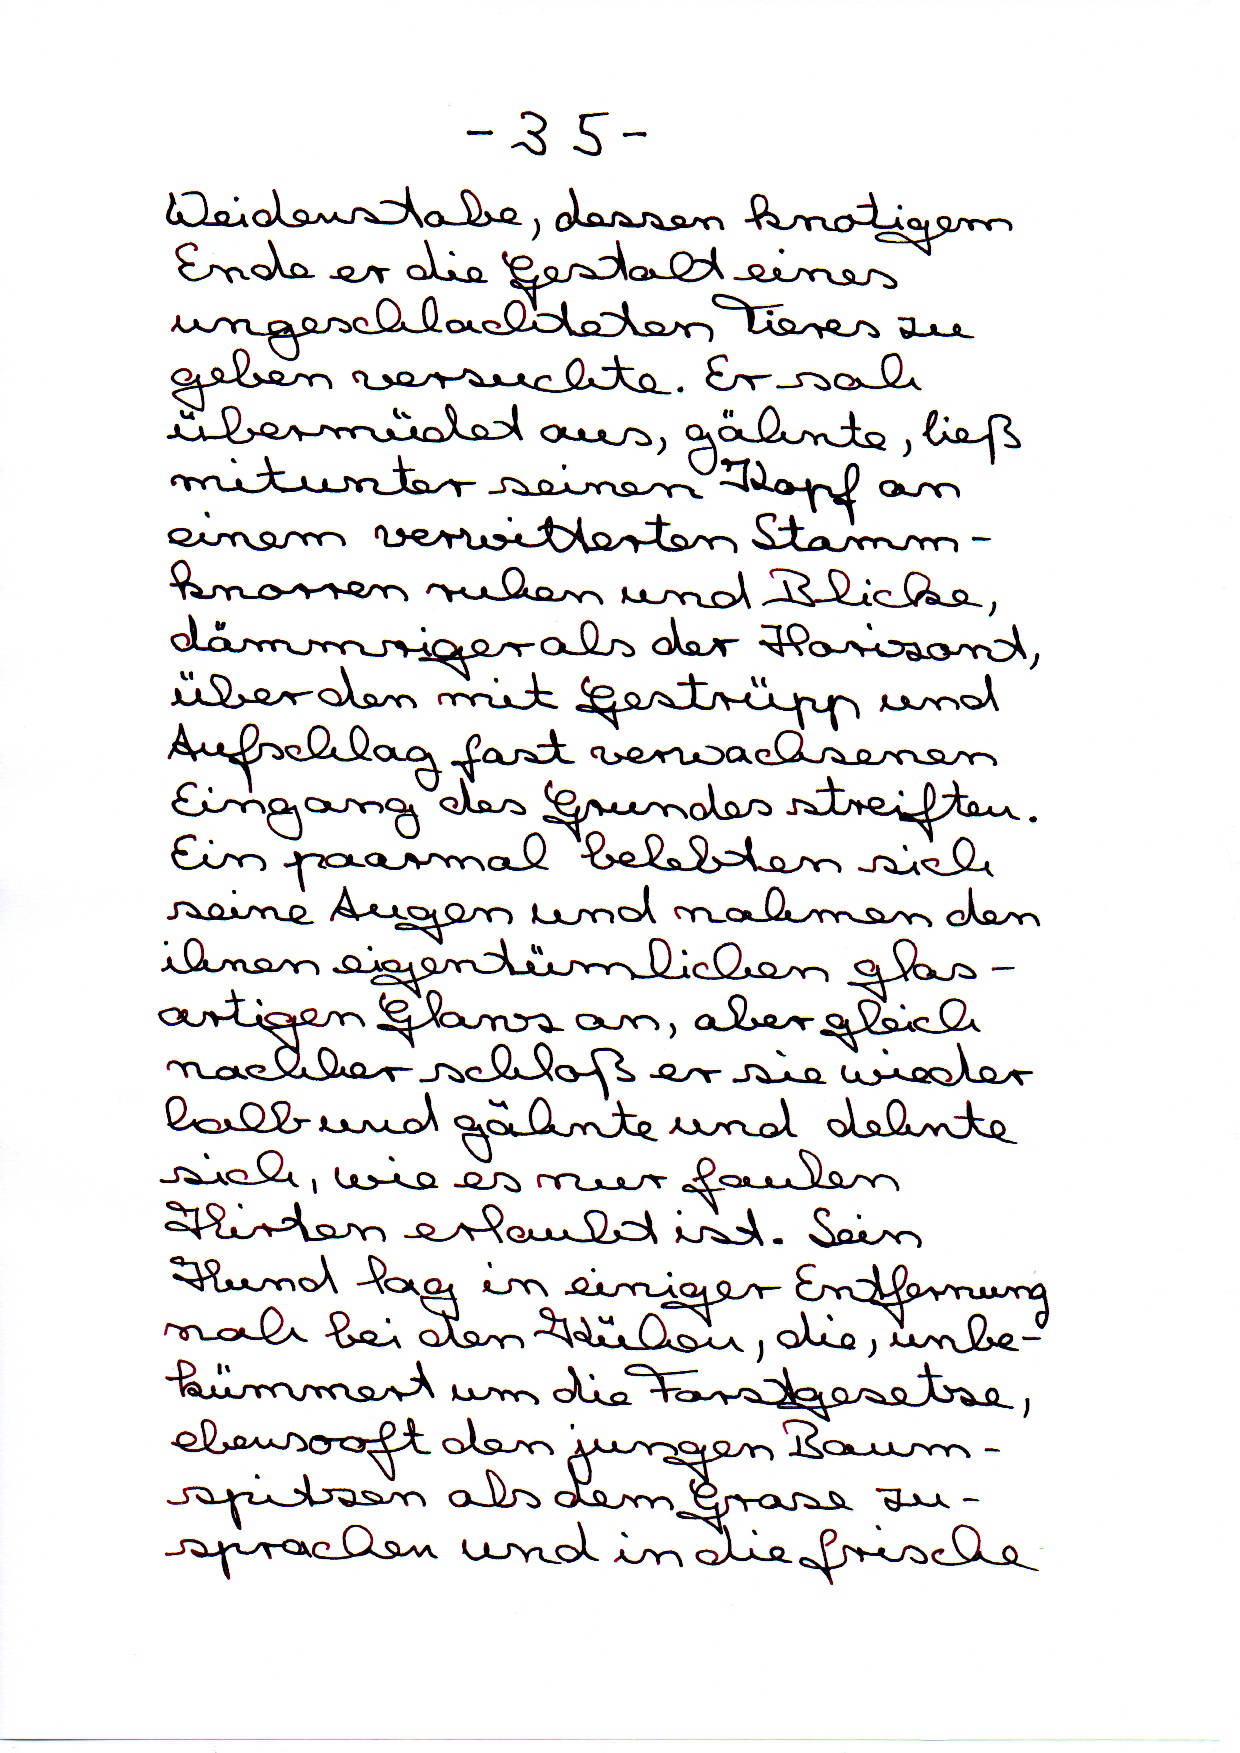 - 35 -
Weidenstabe, dessen knotigem
Ende er die Gestalt eines
ungeschlachteten Tieres zu
geben versuchte. Er sah
übermüdet aus, gähnte, ließ
mitunter seinen Kopf an
einem verwitterten Stamm-
knorren ruhen und Blicke,
dämmriger als der Horizont,
über den mit Gestrüpp und
Aufschlag fast verwachsenen
Eingang des Grundes streiften.
Ein paarmal belebten sich
seine Augen und nahmen den
ihnen eigentümlichen glas-
artigen Glanz an, aber gleich
nachher schloß er sie wieder
halb und gähnte und dehnte
sich, wie es nur faulen
Hirten erlaubt ist. Sein
Hund lag in einiger Entfernung
nah bei den Kühen, die, unbe-
kümmert um die Forstgesetze,
ebensooft den jungen Baum-
spitzen als dem Grase zu-
sprachen und in die frische